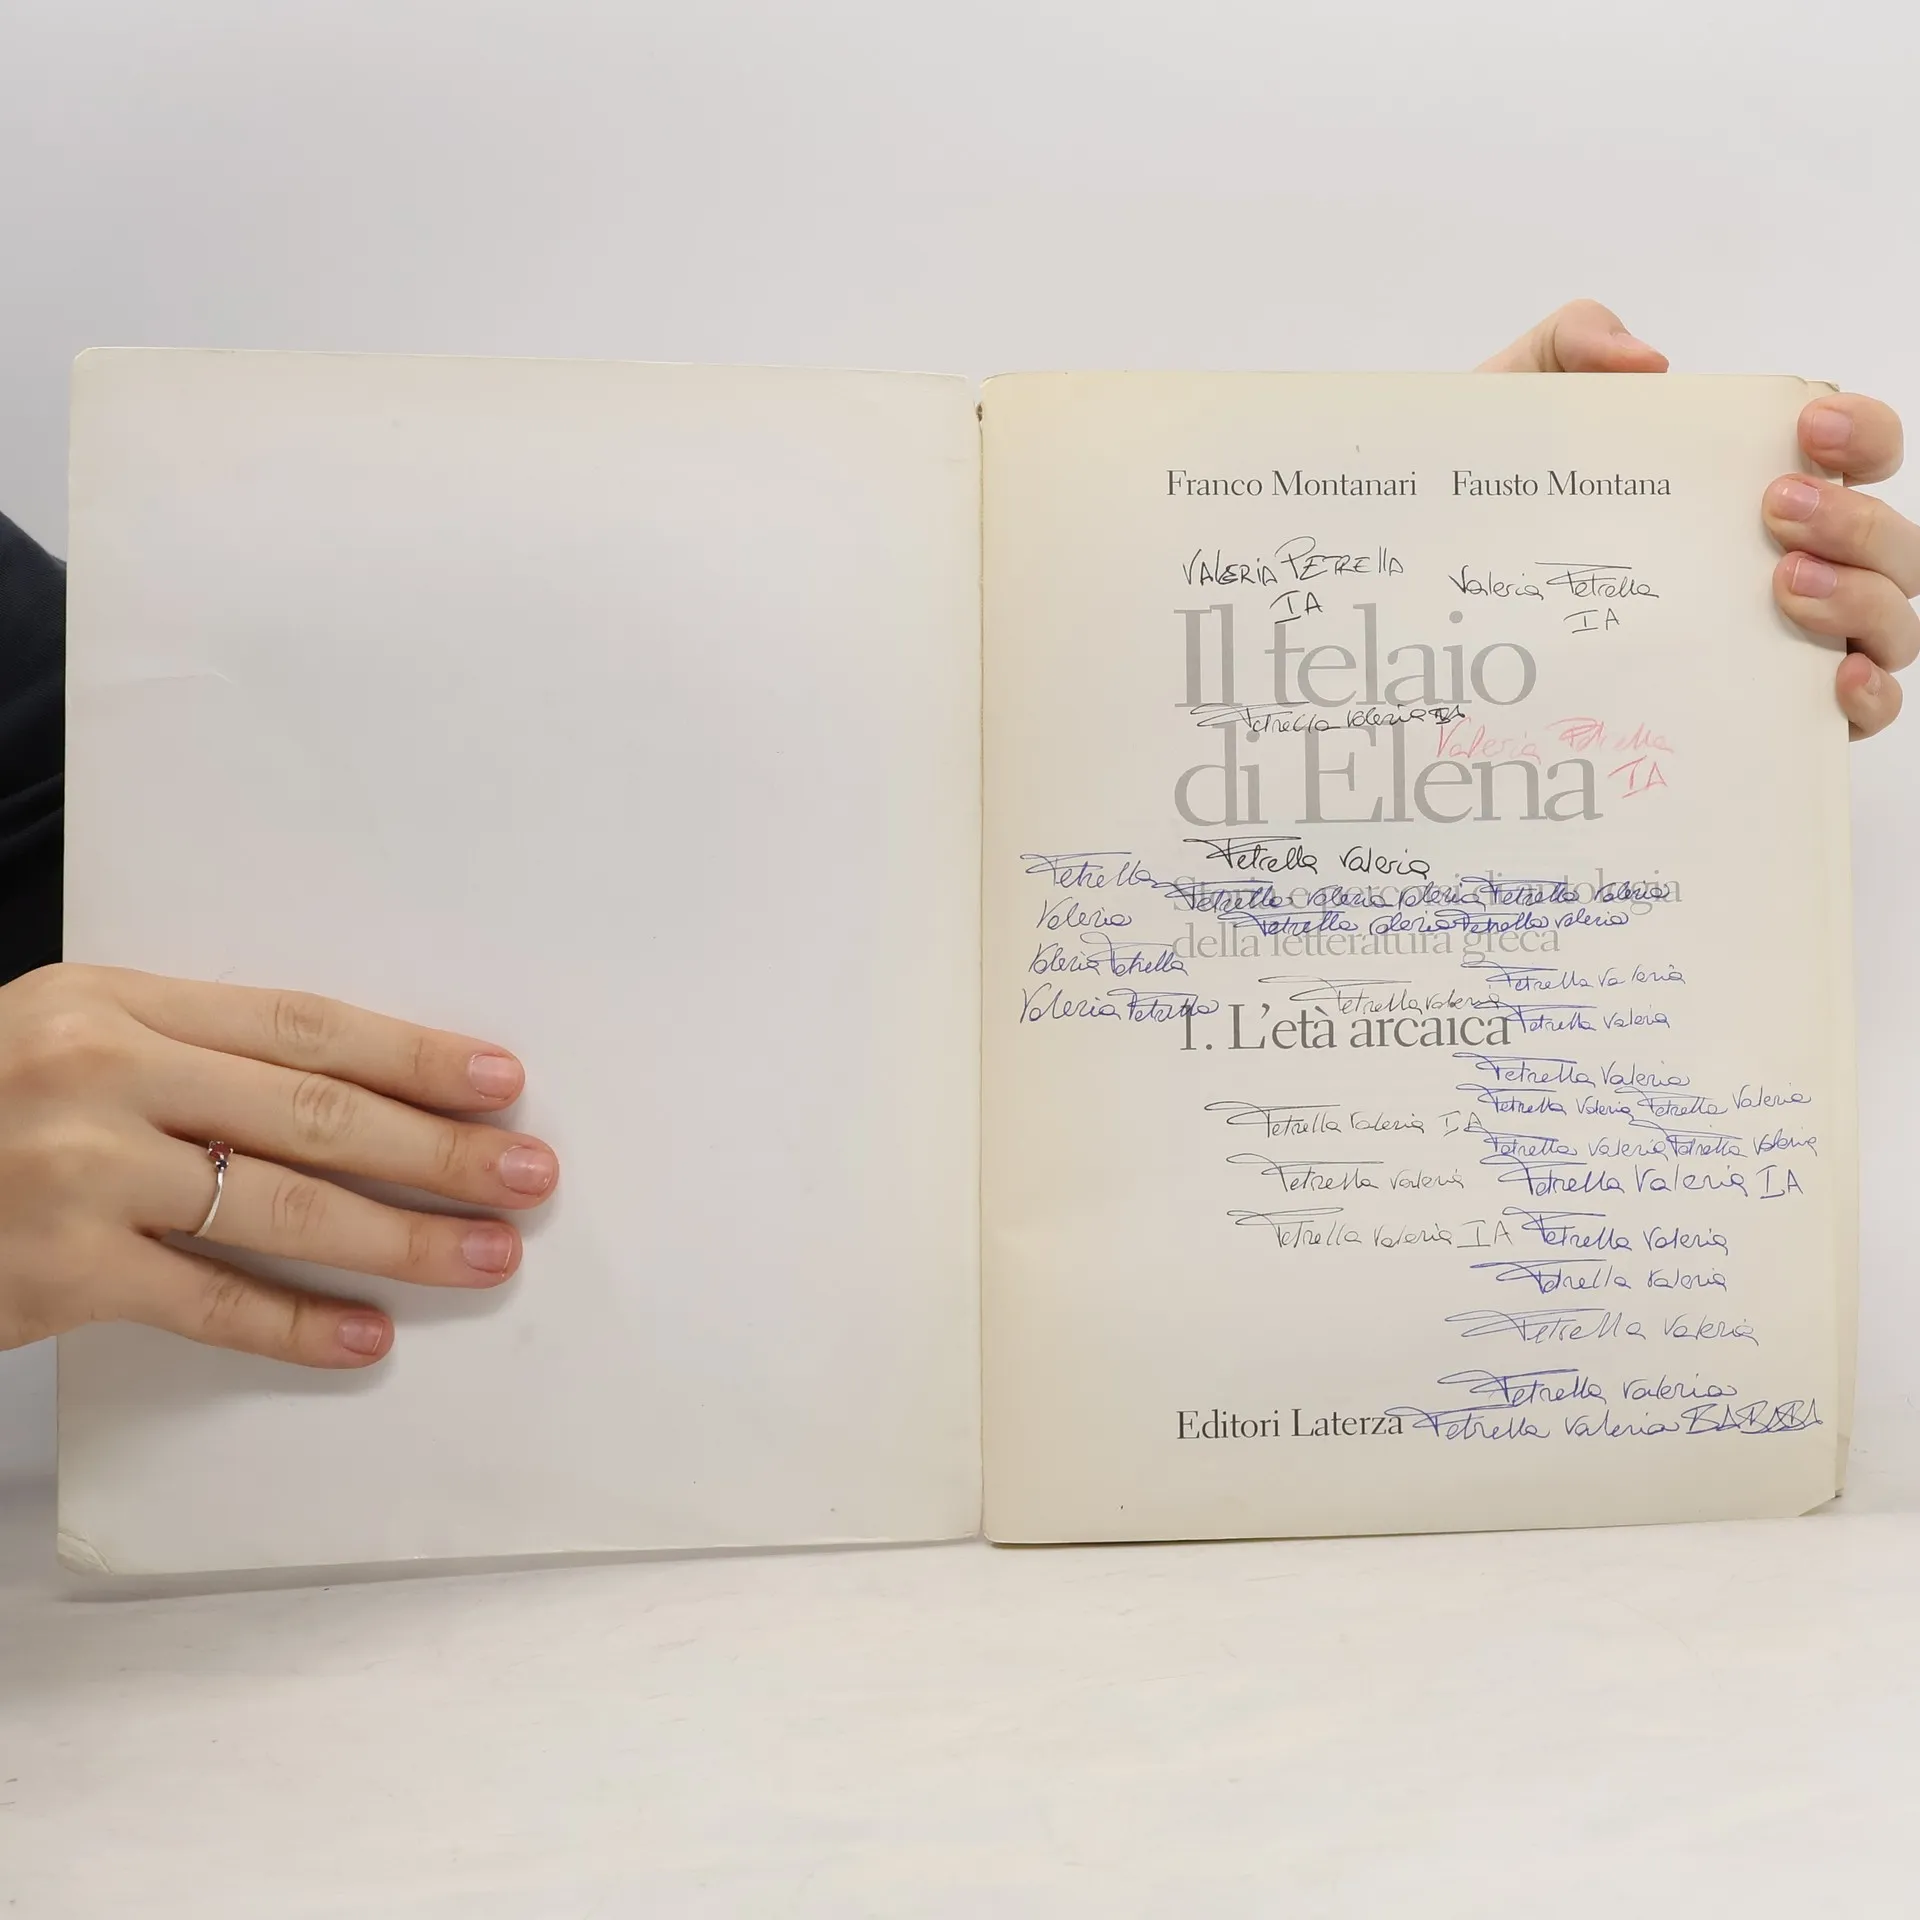 Franco Montanari Fausto Montana
VALERIA PETRELLA
IA
Valeria Petrella
IA
Il telaio
Petrella Valeria
Valeria Petrella
IA
di Elena
Petrella Valeria
Petrella
Petrella Valeria Valeria Petrella Valeria
Storia e percorsi di antologia
Valeria
Petrella Valeria Petrella Valeria
della letteratura greca
Valeria Petrella
Petrella Valeria
Valeria Petrella
Petrella Valeria
Petrella Valeria
1. L'età arcaica
Petrella Valeria
Petrella Valeria Petrella Valeria
Petrella Valeria IA
Petrella Valeria Petrella Valeria
Petrella Valeria
Petrella Valeria IA
Petrella Valeria IA
Petrella Valeria
Petrella Valeria
Petrella Valeria
Petrella Valeria
Editori Laterza
Petrella Valeria